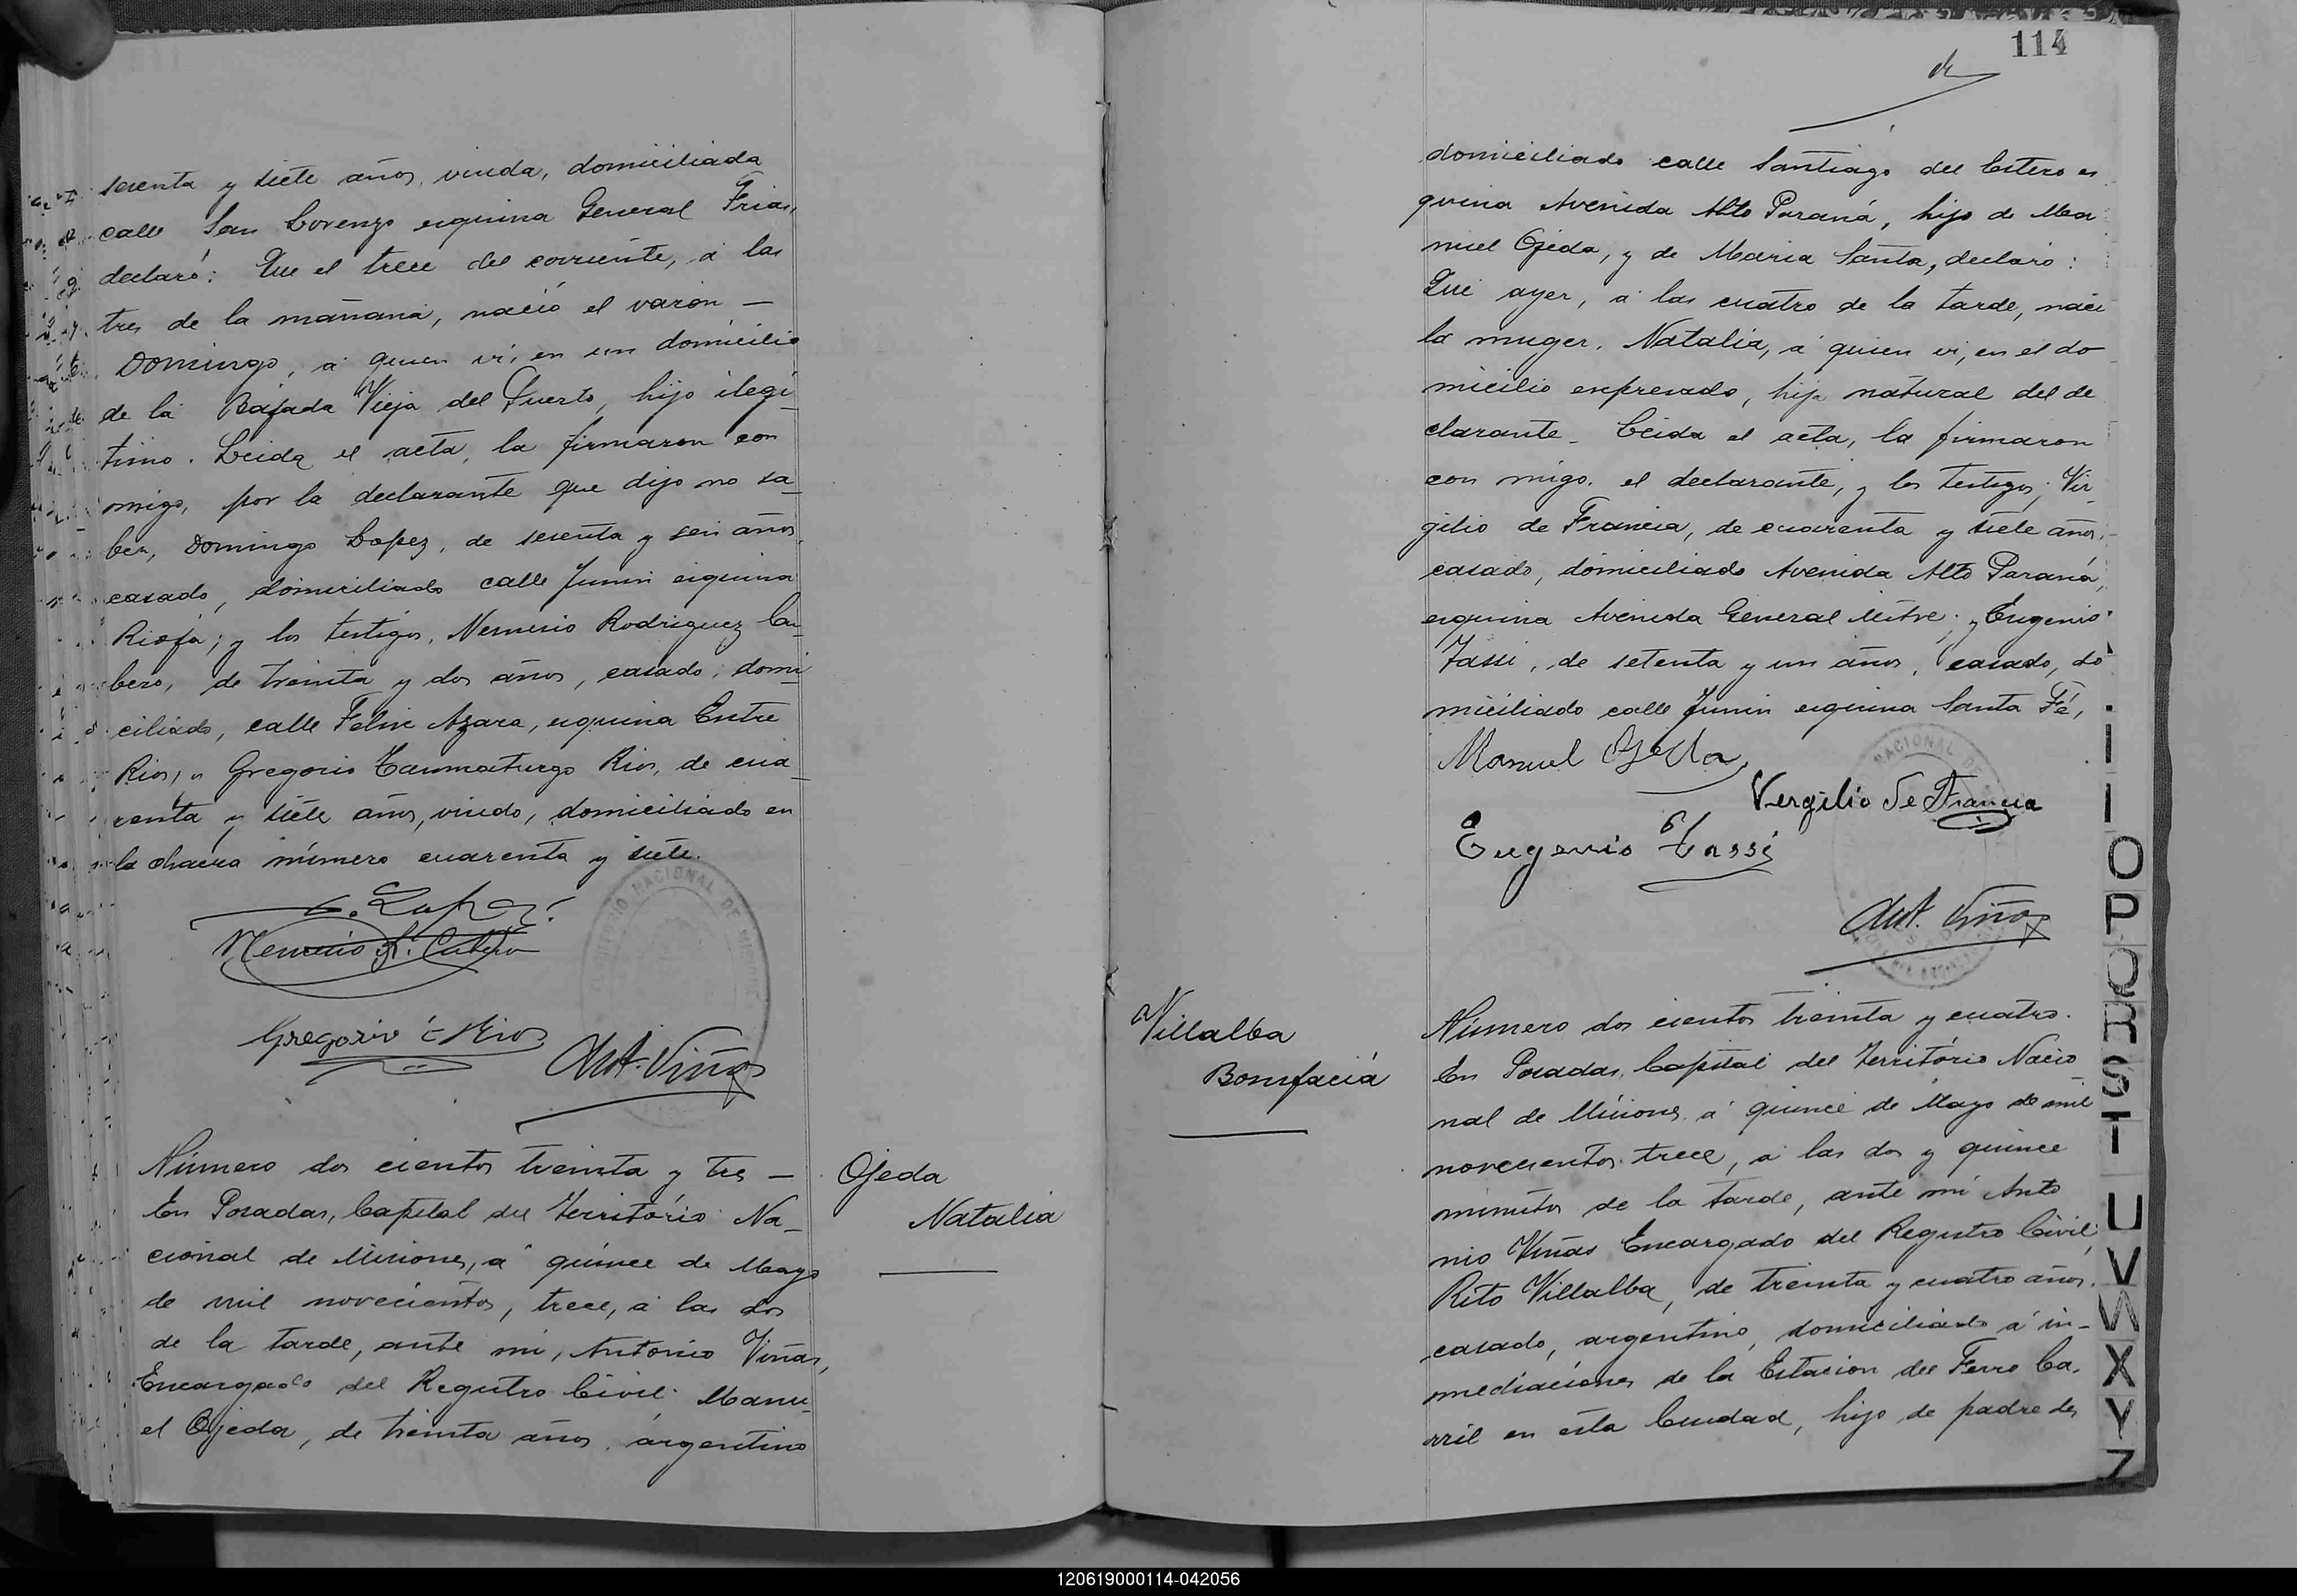 sesenta y siete años, viuda, domiciliada
calle San Lorenzo esquina General Frias,
declaró: Que el trece del corriente, á las
tres de la mañana, nació el varon —
Domingo, á quien vi, en un domicilio
de la Bajada Vieja del Puerto, hijo ilegi-
timo. Leida el acta, la firmaron con
migo, por la declarante que dijo no sa-
ber, Domingo Lopez, de sesenta y seis años,
casado, domiciliado calle Junin esquina
Rioja; y los testigos, Nemesio Rodriguez Cu-
bero, de treinta y dos años, casado, domi-
ciliado, calle Felix Azara, esquina Entre
Rios, y Gregorio Taumaturgo Rios, de cua-
renta y siete años, viudo, domiciliado en
la chacra número cuarenta y siete.
Nemesio R. Cubero
Gregorio T Rios
Ant. Viñas
Número dos cientos treinta y tres —
En Posadas, Capital del Território Na-
cional de Misiones, á quince de Mayo
de mil novecientos, trece, á las dos
de la tarde, ante mi, Antonio Viñas,
Encargado del Registro Civil. Manu-
el Ojeda, de treinta años, argentino
Ojeda
Natalia
114
domiciliado calle Santiago del Estero es
quina Avenida Alto Paraná, hijo de Ma
nuel Ojeda, y de Maria Santa, declaró:
Que ayer, á las cuatro de la tarde, nació
la muger, Natalia, á quien vi, en el do
micilio expresado, hija natural del de
clarante. Leida el acta, la firmaron
con migo, el declarante, y los testigos, Vir-
gilio de Francia, de cuarenta y siete años,
casado, domiciliado Avenida Alto Paraná,
esquina Avenida General Mitre; y Eugenio
Tassi, de setenta y un años, casado, do
miciliado calle Junin esquina Santa Fé,
Manuel Ojeda
Vergilio De Francia
Eugenio Tassi
Ant. Viñas
Villalba
Bonifacia
Número dos cientos treinta y cuatro.
En Posadas, Capital del Território Nacio
nal de Misiones á quince de Mayo de mil
novecientos trece, á las dos y quince
minutos de la tarde, ante mi Anto
nio Viñas Encargado del Registro Civil,
Rito Villalba, de treinta y cuatro años,
casado, argentino, domiciliado á in-
mediaciones de la Estacion del Ferro Ca-
rril en esta Ciudad, hijo de padre des
O
P
Q
R
S
T
U
V
W
X
Y
Z
120619000114-042056